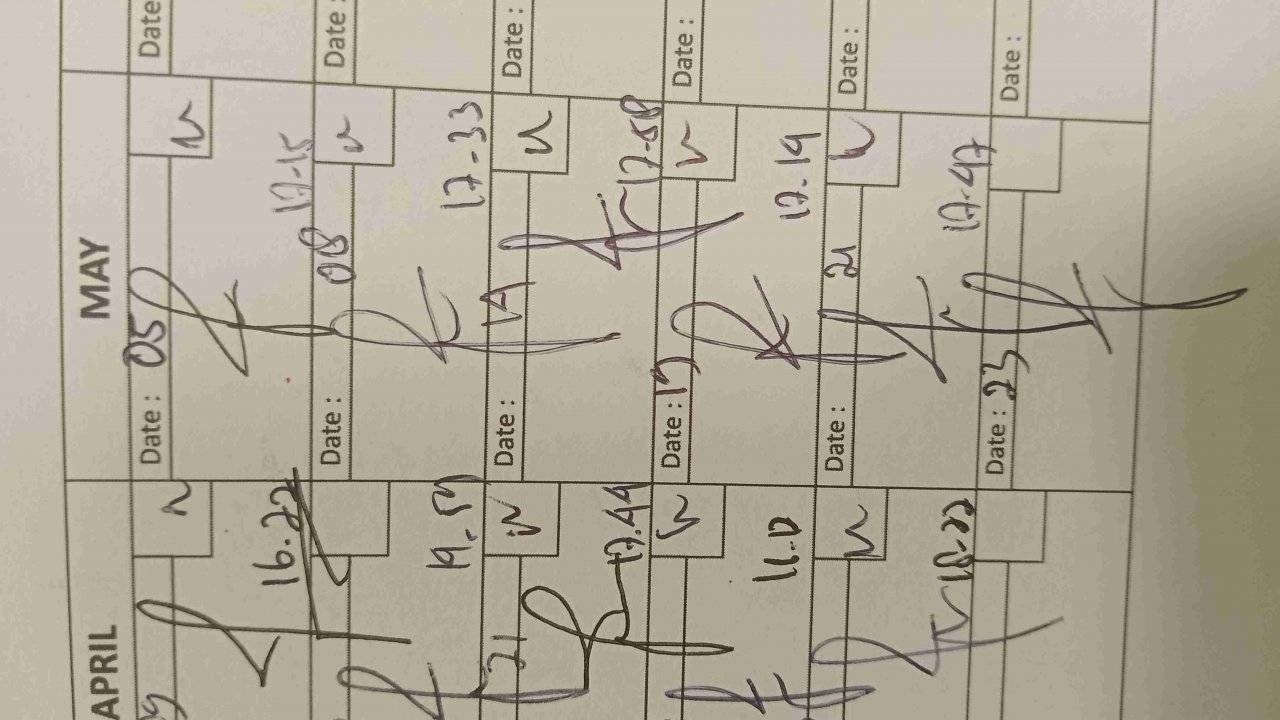 APRIL MAY
Date : 05 Date
16.27 17-15
Date : 08 Date :
19.59 17-33
21 Date : 14 Date :
17.44 17-58
Date : 19 Date :
17.19
Date : 21 Date :
18-22 17-47
Date : 23 Date :